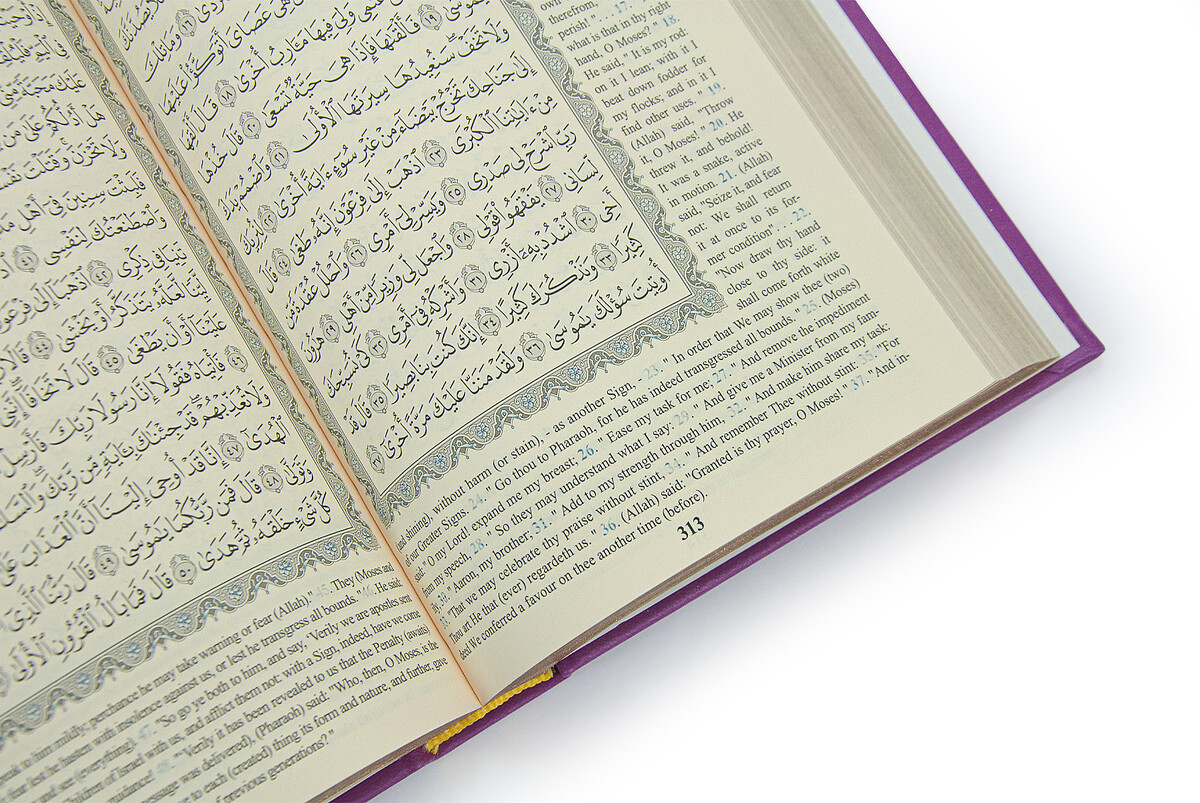 هِيَ عَصَايَ أَتَوَكَّؤُا۟ عَلَيْهَا
غَنَمِي وَلِيَ فِيهَا مَـَٔارِبُ أُخْرَىٰ ١٨ قَالَ أَلْقِهَا
يَٰمُوسَىٰ ١٩ فَأَلْقَىٰهَا فَإِذَا هِيَ حَيَّةٌ تَسْعَىٰ ٢٠ قَالَ خُذْهَا
وَلَا تَخَفْ سَنُعِيدُهَا سِيرَتَهَا ٱلْأُولَىٰ ٢١ وَٱضْمُمْ يَدَكَ
إِلَىٰ جَنَاحِكَ تَخْرُجْ بَيْضَآءَ مِنْ غَيْرِ سُوٓءٍ ءَايَةً أُخْرَىٰ ٢٢ لِنُرِيَكَ
مِنْ ءَايَٰتِنَا ٱلْكُبْرَى ٢٣ ٱذْهَبْ إِلَىٰ فِرْعَوْنَ إِنَّهُۥ طَغَىٰ ٢٤ قَالَ
رَبِّ ٱشْرَحْ لِي صَدْرِي ٢٥ وَيَسِّرْ لِيٓ أَمْرِي ٢٦ وَٱحْلُلْ عُقْدَةً مِّن
لِّسَانِي ٢٧ يَفْقَهُوا۟ قَوْلِي ٢٨ وَٱجْعَل لِّي وَزِيرًا مِّنْ أَهْلِي ٢٩ هَٰرُونَ
أَخِي ٣٠ ٱشْدُدْ بِهِۦٓ أَزْرِي ٣١ وَأَشْرِكْهُ فِيٓ أَمْرِي ٣٢ كَيْ نُسَبِّحَكَ
كَثِيرًا ٣٣ وَنَذْكُرَكَ كَثِيرًا ٣٤ إِنَّكَ كُنتَ بِنَا بَصِيرًا ٣٥ قَالَ قَدْ
أُوتِيتَ سُؤْلَكَ يَٰمُوسَىٰ ٣٦ وَلَقَدْ مَنَنَّا عَلَيْكَ مَرَّةً أُخْرَىٰ ٣٧
therefrom,
perish!" . . . 17.
what is that in thy right
hand, O Moses?" 18.
He said, " It is my rod:
on it I lean; with it I
beat down fodder for
my flocks; and in it I
find other uses. " 19.
(Allah) said, "Throw
it, O Moses!" 20. He
threw it, and behold!
It was a snake, active
in motion. 21. (Allah)
said, "Seize it, and fear
not: We shall return
it at once to its for-
mer condition". . . 22.
"Now draw thy hand
close to thy side: it
shall come forth white
(and shining), without harm (or stain), - as another Sign, - 23. " In order that We may show thee (two)
of our Greater Signs. 24. " Go thou to Pharaoh, for he has indeed transgressed all bounds. " 25. (Moses)
said: "O my Lord! expand me my breast; 26. " Ease my task for me; 27. " And remove the impediment
from my speech, 28. " So they may understand what I say: 29. " And give me a Minister from my fam-
ily, 30. " Aaron, my brother; 31. " Add to my strength through him, 32. " And make him share my task:
33. "That we may celebrate thy praise without stint, 34. " And remember Thee without stint: 35. " For
Thou art He that (ever) regardeth us. " 36. (Allah) said: "Granted is thy prayer, O Moses! " 37. "And in-
deed We conferred a favour on thee another time (before).
313
هَلْ أَدُلُّكُمْ عَلَىٰ مَن
وَلَا تَحْزَنَ وَقَتَلْتَ نَفْسًا
فَلَبِثْتَ سِنِينَ فِيٓ أَهْلِ مَدْيَنَ
وَٱصْطَنَعْتُكَ لِنَفْسِي ٤١
تَنِيَا فِي ذِكْرِي ٤٢ ٱذْهَبَآ إِلَىٰ فِرْعَوْنَ
لَّيِّنًا لَّعَلَّهُۥ يَتَذَكَّرُ أَوْ يَخْشَىٰ ٤٤ قَالَا
عَلَيْنَآ أَوْ أَن يَطْغَىٰ ٤٥ قَالَ لَا تَخَافَآ إِنَّنِي
٤٦ فَأْتِيَاهُ فَقُولَآ إِنَّا رَسُولَا رَبِّكَ فَأَرْسِلْ
وَلَا تُعَذِّبْهُمْ قَدْ جِئْنَٰكَ بِـَٔايَةٍ مِّن رَّبِّكَ وَٱلسَّلَٰمُ
ٱلْهُدَىٰٓ ٤٧ إِنَّا قَدْ أُوحِيَ إِلَيْنَآ أَنَّ ٱلْعَذَابَ عَلَىٰ
وَتَوَلَّىٰ ٤٨ قَالَ فَمَن رَّبُّكُمَا يَٰمُوسَىٰ ٤٩ قَالَ رَبُّنَا ٱلَّذِيٓ
كُلَّ شَيْءٍ خَلْقَهُۥ ثُمَّ هَدَىٰ ٥٠ قَالَ فَمَا بَالُ ٱلْقُرُونِ ٱلْأُولَىٰ
speak to him mildly; perchance he may take warning or fear (Allah)." 45. They (Moses and
fear lest he hasten with insolence against us, or lest he transgress all bounds." 46. He said:
and see (everything). 47. "So go ye both to him, and say, 'Verily we are apostles sent
Children of Israel with us, and afflict them not: with a Sign, indeed, have we come
guidance! 48. " 'Verily it has been revealed to us that the Penalty (awaits)
message was delivered), (Pharaoh) said: "Who, then, O Moses, is the
to each (created) thing its form and nature, and further, gave
of previous generations? "